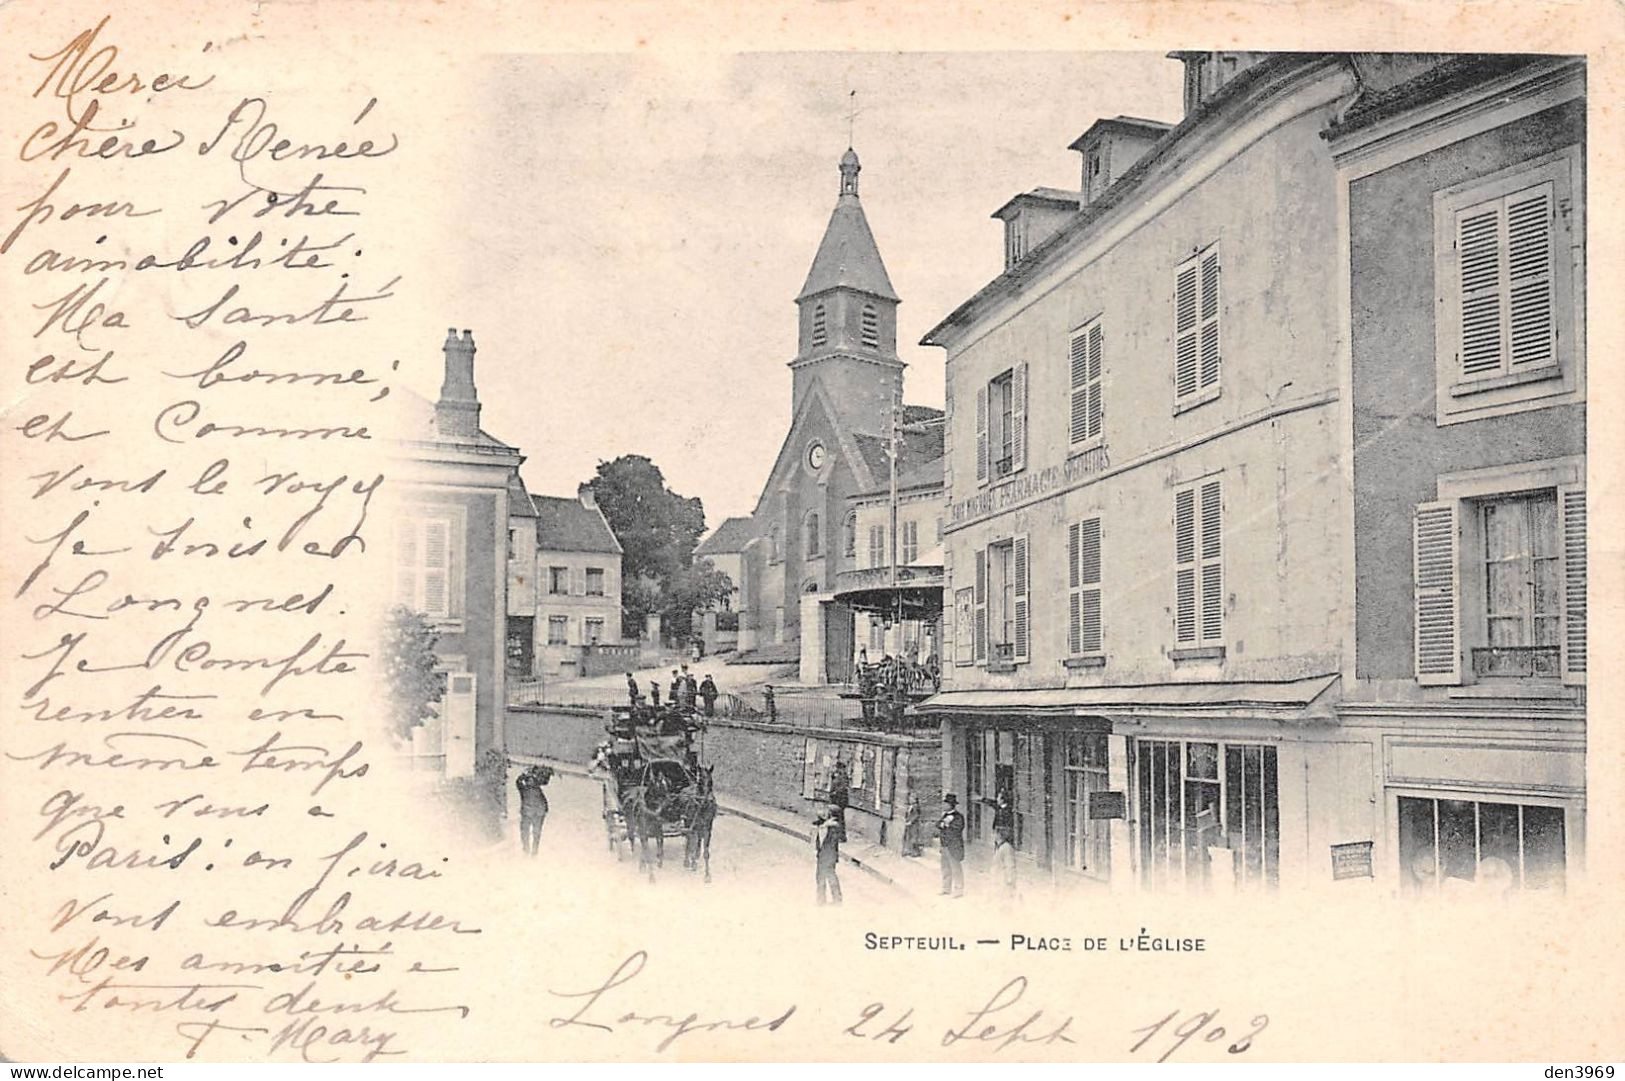 Merci
chère Renée
pour votre
aimabilité.
Ma santé
est bonne;
et comme
vous le voyez
je suis à
Longnes.
Je compte
rentrer en
même temps
que vous à
Paris: où j'irai
vous embrasser
Mes amitiés à
toutes deux
Mary
SEPTEUIL. — PLACE DE L'ÉGLISE
Longnes 24 Sept 1903
PHARMACIE SPÉCIALITÉS
den3969